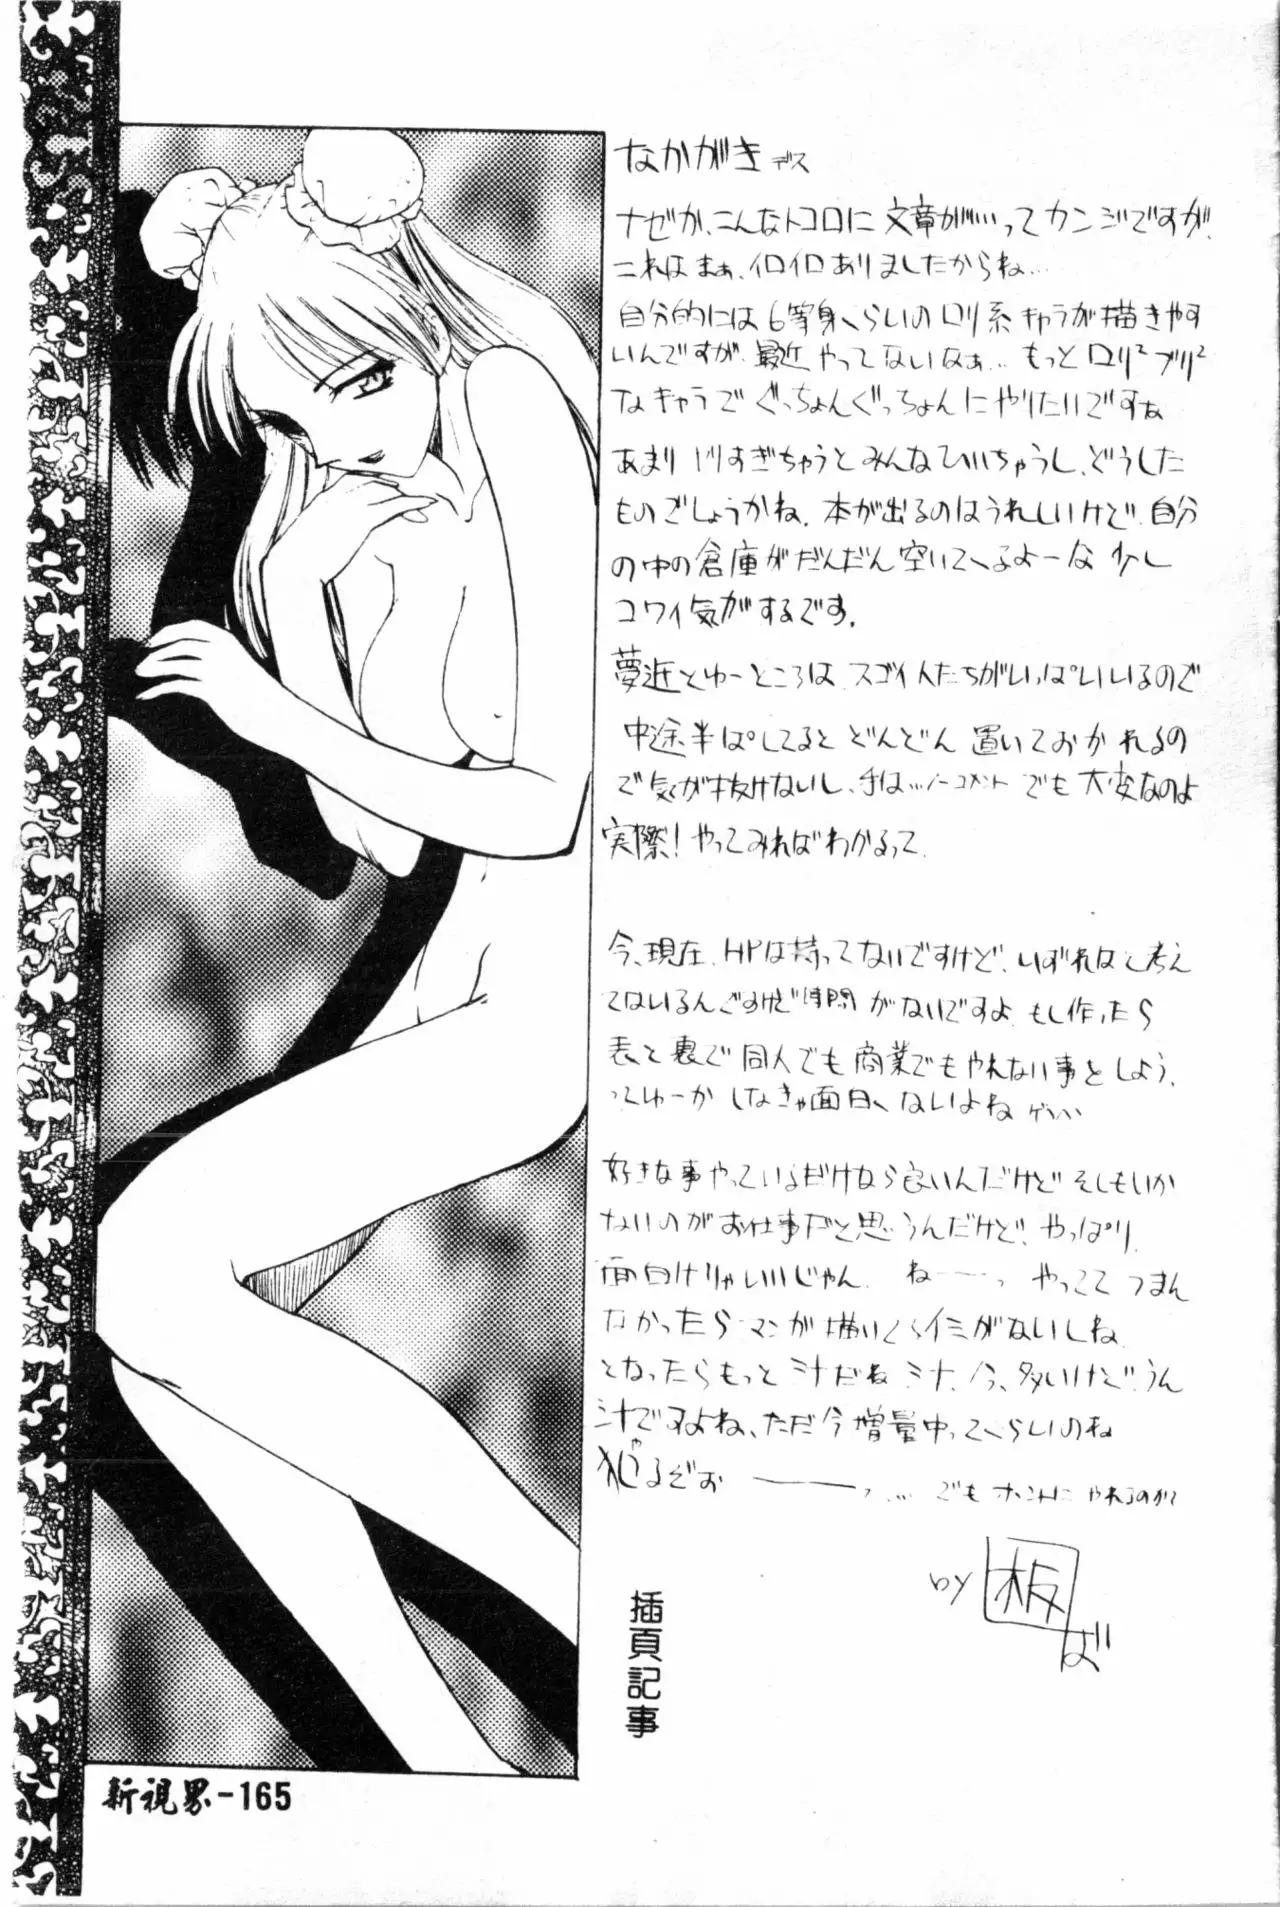 なかがき デス
ナゼか、こんなトコロに 文章が…ってカンジですが、
これは まぁ、イロイロ ありましたからね…
自分的には 6等身くらいの ロリ系 キャラが 描きやす
いんですが、最近 やってないなぁ… もっと ロリ² プリ²
なキャラで ぐっちょんぐっちょんに やりたいですぅ
あまり ハリすぎちゃうと みんな ひいちゃうし、どうした
ものでしょうかね、本が出るのは うれしいけど、自分
の中の倉庫が だんだん 空いてくるよーな 少し
コワイ気がするです。
夢近とゆーところは スゴイ人たちが いっぱい いるので
中途半ぱしてると どんどん 置いておかれるの
で 気が抜けないし、手は…ノーコメント でも 大変なのよ
実際! やってみれば わかるって、
今、現在、HPは 持ってないですけど、いずれはと 考え
てはいるんですけど 時間がないですよ もし作ったら
表と裏で 同人でも 商業でも やれない事をしよう、
ってゆーか しなきゃ面白くないよね
好きな事やっているだけなら 良いんだけど そしもいか
ないのが お仕事だと思うんだけど、やっぱり
面白けりゃ いいじゃん、ね——っ やってて つまん
なかったら マンが 描いてる イミがないしね
となったら もっと 汁だね 汁、今、多いけど うん
汁ですよね、ただ今 増量中ってくらいのね
犯るぞぉ ———っ … でも ホントに やれるのか?
by 板ば
插頁記事
新視界-165